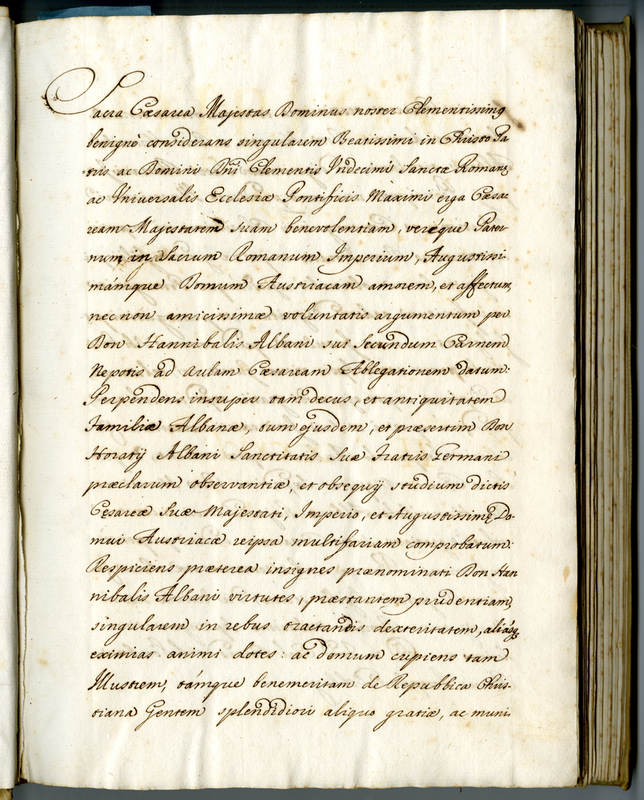 Sacra Cæsarea Majestas Dominus noster Clementissimq
benignè considerans singularem Beatissimi in Christo Pa-
tris ac Domini Dñi Clementis Undecimi Sanctæ Romanę
ac Universalis Ecclesiæ Pontificis Maximi erga Cæsa-
ream Majestatem Suam benevolentiam, veréque Pater
num in Sacrum Romanum Imperium, Augustissi-
mámque Domum Austriacam amorem, et affectum,
nec non amicissimæ voluntatis argumentum per
Don Hannibalis Albani sui secundum Carnem
Nepotis ad Aulam Cæsaream Ablegationem datum:
Perpendens insuper tam decus, et antiquitatem
Familiæ Albanæ, tum ejusdem, et præsertim Don
Horatij Albani Sanctitatis Suæ Fratris Germani
præclarum observantiæ, et obsequij studium dictis
Cęsareæ Suæ Majestati, Imperio, et Augustissimę Do-
mui Austriacæ reipsa multifariam comprobatum:
Respiciens præterea insignes prænominati Don Han
nibalis Albani virtutes, præstantem prudentiam,
singularem in rebus tractandis dexteritatem, aliásq
eximias animi dotes: ac domum cupiens tam
Illustrem, támque benemeritam de Republica Chris-
tiana Gentem splendidiori aliquo gratiæ, ac muni-